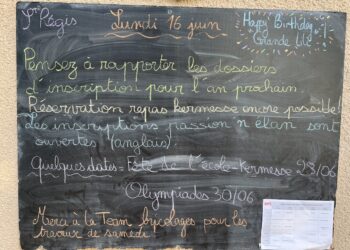 St Régis
Lundi 16 juin
Happy Birthday
Grande Lily
Pensez à rapporter les dossiers
d'inscription pour l'an prochain.
Réservation repas kermesse encore possible!
Les inscriptions passion n élan sont
ouvertes (anglais).
Quelques dates = Fête de l'école-Kermesse 29/06
Olympiades 30/06
Merci à la Team bricolages pour les
travaux de samedi!